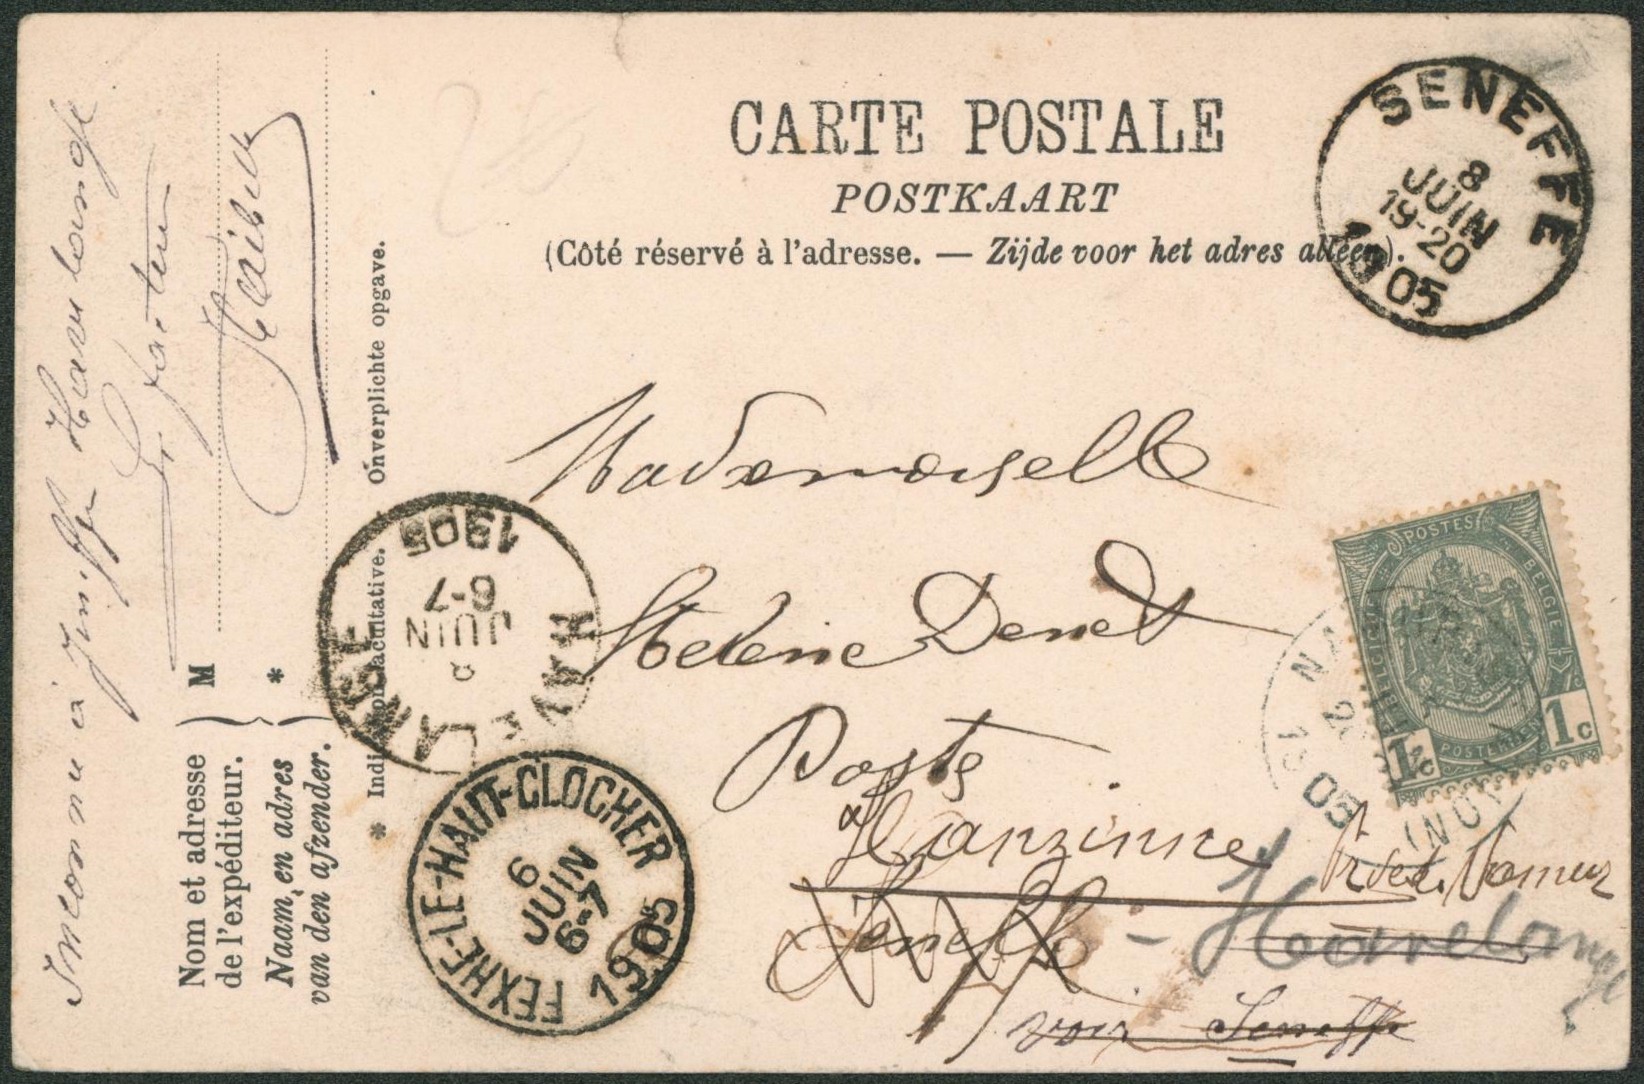 CARTE POSTALE
POSTKAART
(Côté réservé à l'adresse. — Zijde voor het adres alleen).
SENEFFE
8
JUIN
19-20
1905
Mademoiselle
Helene Denet
Poste
à Hanzinne
Prov. Namur
Seneffe
- Havelange
voir Seneffe
POSTES
BELGIQUE
BELGIE
POSTERIJEN
1c
1c
HAVELANGE
8
JUIN
6-7
1905
FEXHE-LE-HAUT-CLOCHER
6
JUIN
6-7
1905
Inconnu à Seneffe Havelange
Le facteur
M
*
Nom et adresse
de l'expéditeur.
Naam en adres
van den afzender.
* Indication facultative. Onverplichte opgave.